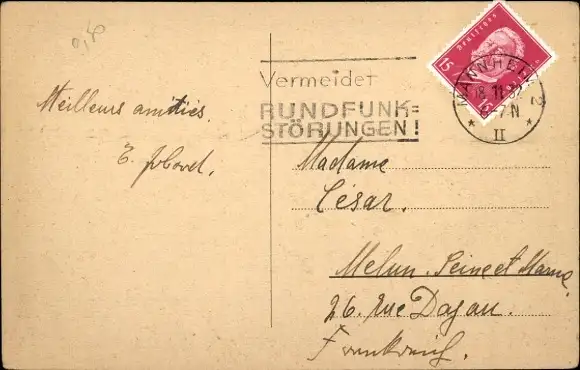 0,40
Meilleurs amitiés
Vermeidet
RUNDFUNK=
STÖRUNGEN!
15 Deutsches 15
MANNHEIM 2
18.11.
-7N
* II *
Madame
César.
Melun. Seine et Marne
26. rue Dajau.
Frankreich.